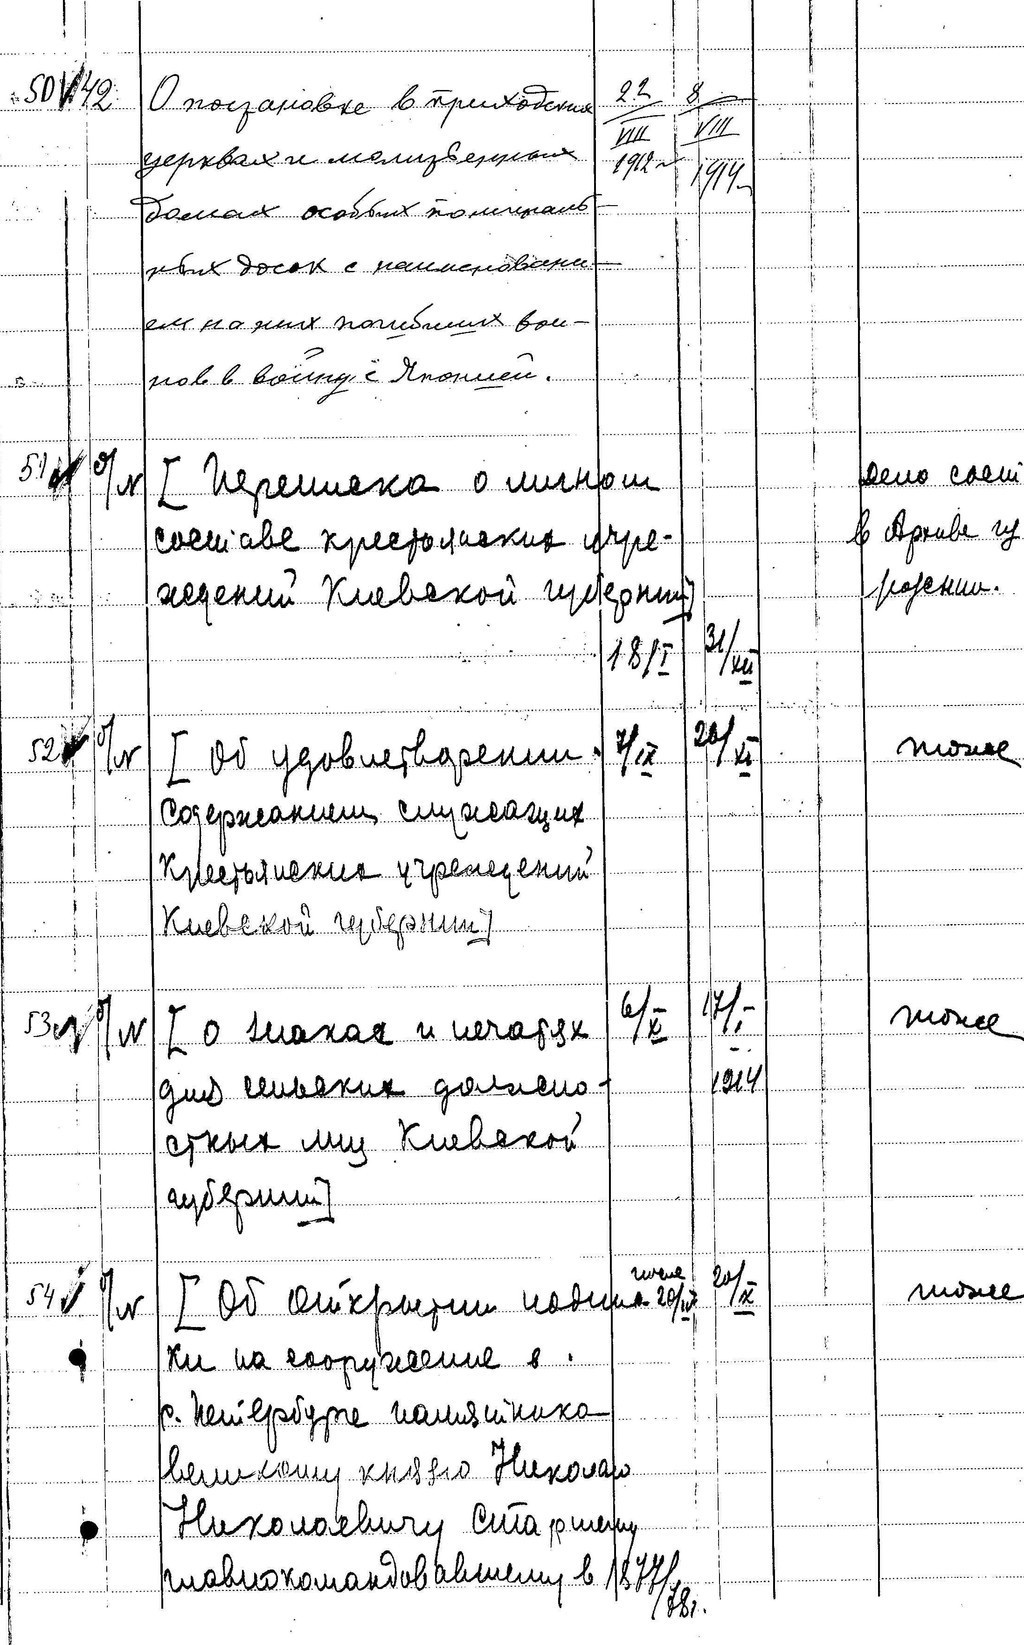 50 42 О постановке в приходских 22/VIII 1912 г. 8/VIII 1914 г.
церквах и молитвенных
домах особых поминаль-
ных досок с наименовани-
ем на них погибших вои-
нов в войну с Японией.
51 б/N [Переписка о личном дело сост
составе крестьянских учре- в Архиве уч
ждений Киевской губернии] реждении.
18/I 31/XII
52 б/N [Об удовлетворении 7/IX 20/XI тоже
содержанием служащих
крестьянских учреждений
Киевской губернии]
53 б/N [О знаках и печатях 6/X 17/I тоже
для сельских должно- 1914
стных лиц Киевской
губернии]
54 б/N [Об открытии подпис- 20/X тоже
ки на сооружение в
г. Петербурге памятника
великому князю Николаю
Николаевичу Старшему
главнокомандовавшему в 1877/78г.